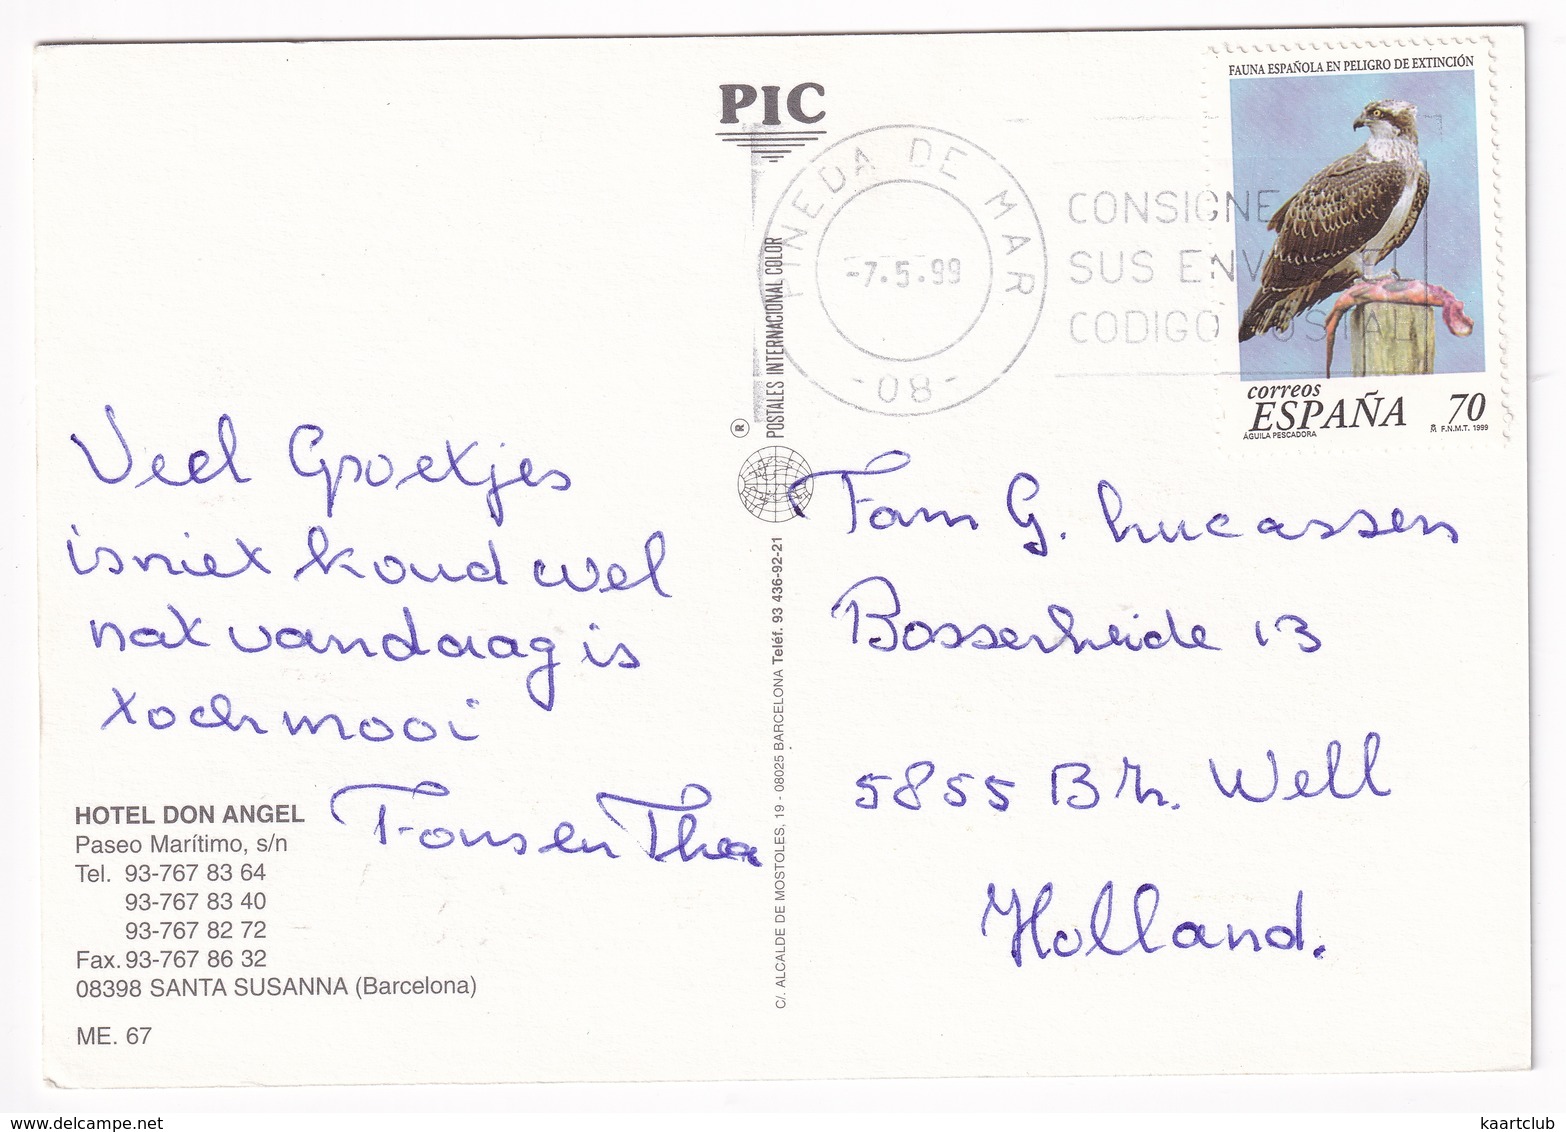 PIC
POSTALES INTERNACIONAL COLOR
®
C/. ALCALDE DE MOSTOLES, 19 - 08025 BARCELONA Teléf. 93 436-92-21
PINEDA DE MAR
-7.5.99
-08-
CONSIGNE
SUS ENV
CODIGO POSTAL
FAUNA ESPAÑOLA EN PELIGRO DE EXTINCIÓN
correos
ESPAÑA 70
ÁGUILA PESCADORA F.N.M.T. 1999
Veel Groetjes
is niet koud wel
nat vandaag is
t och mooi
Fons en Thea
Fam G. Lucassen
Bosserheide 13
5855 Well
Holland.
HOTEL DON ANGEL
Paseo Marítimo, s/n
Tel. 93-767 83 64
93-767 83 40
93-767 82 72
Fax. 93-767 86 32
08398 SANTA SUSANNA (Barcelona)
ME. 67
www.delcampe.net
kaartclub